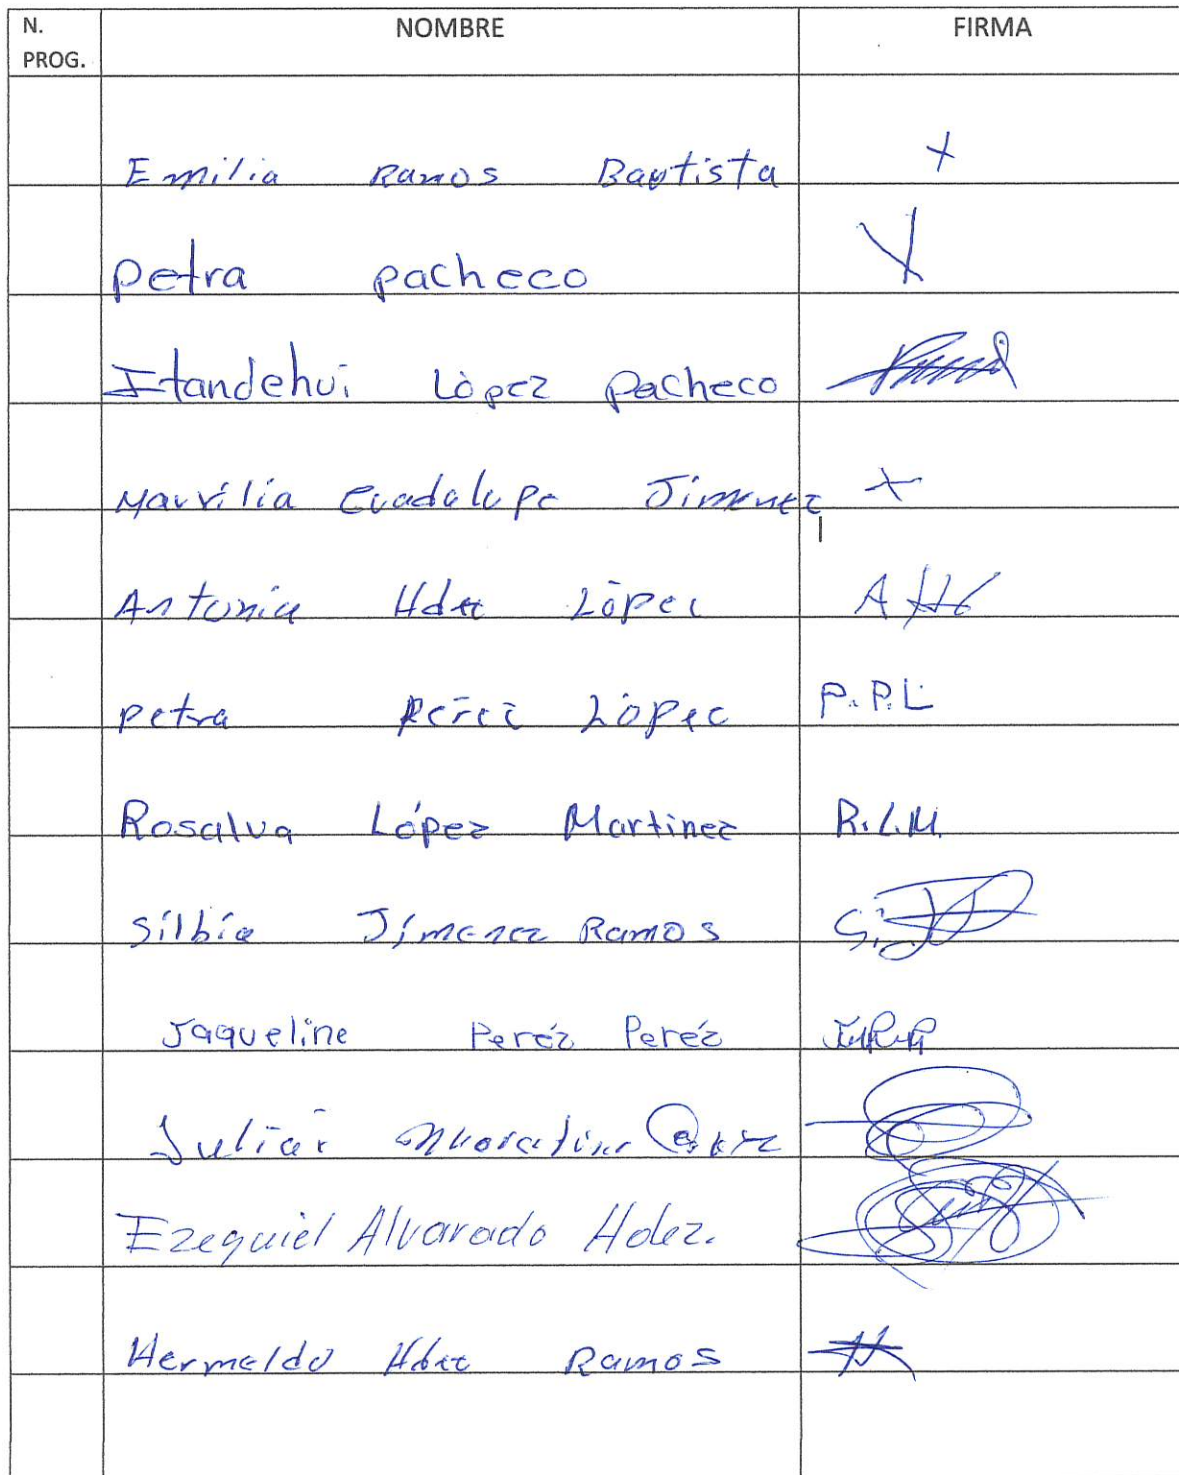 N. PROG. NOMBRE FIRMA
Emilia Ramos Bautista +
Petra pacheco
Itandehui López Pacheco
Maurilia Guadalupe Jimenez +
Antonia Hdez López
Petra Pérez López P.P.L
Rosalva López Martinez R.L.M.
Silbia Jímenez Ramos
Jaqueline Peréz Peréz
Ezequiel Alvarado Hdez.
Hermeldo Hdez Ramos